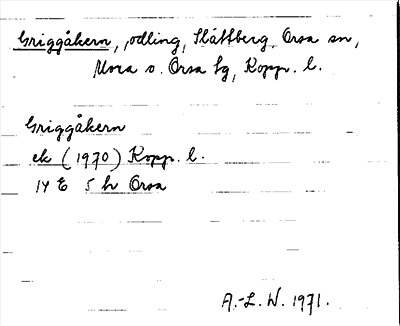 Griggåkern, odling, Slättberg, Orsa sn,
Mora o. Orsa tg, Kopp. l.
Griggåkern
ek (1970) Kopp. l.
14 E 5 h Orsa
A.-L. W. 1971.